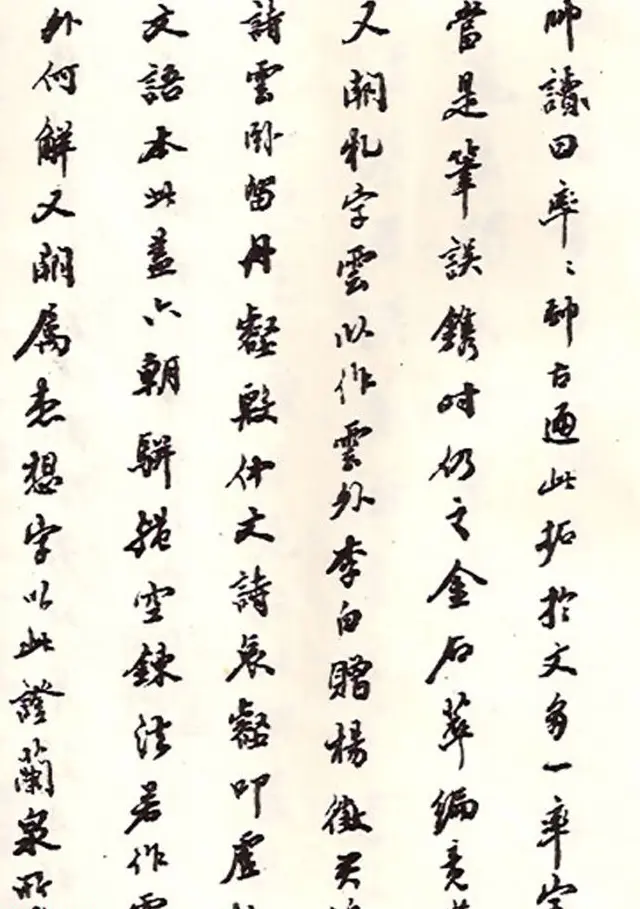 帥讀曰率〻帥古通此拓於文多一率字
當是筆誤鐫時仍之金石萃編竟
又闕乳字雲以作雲外李白贈楊徵君
詩雲卧留丹壑殷仲文詩哀壑叩虛
文語本此蓋六朝駢體空鍊法若作雲
外何解又闕属恚想字以此證蘭泉所